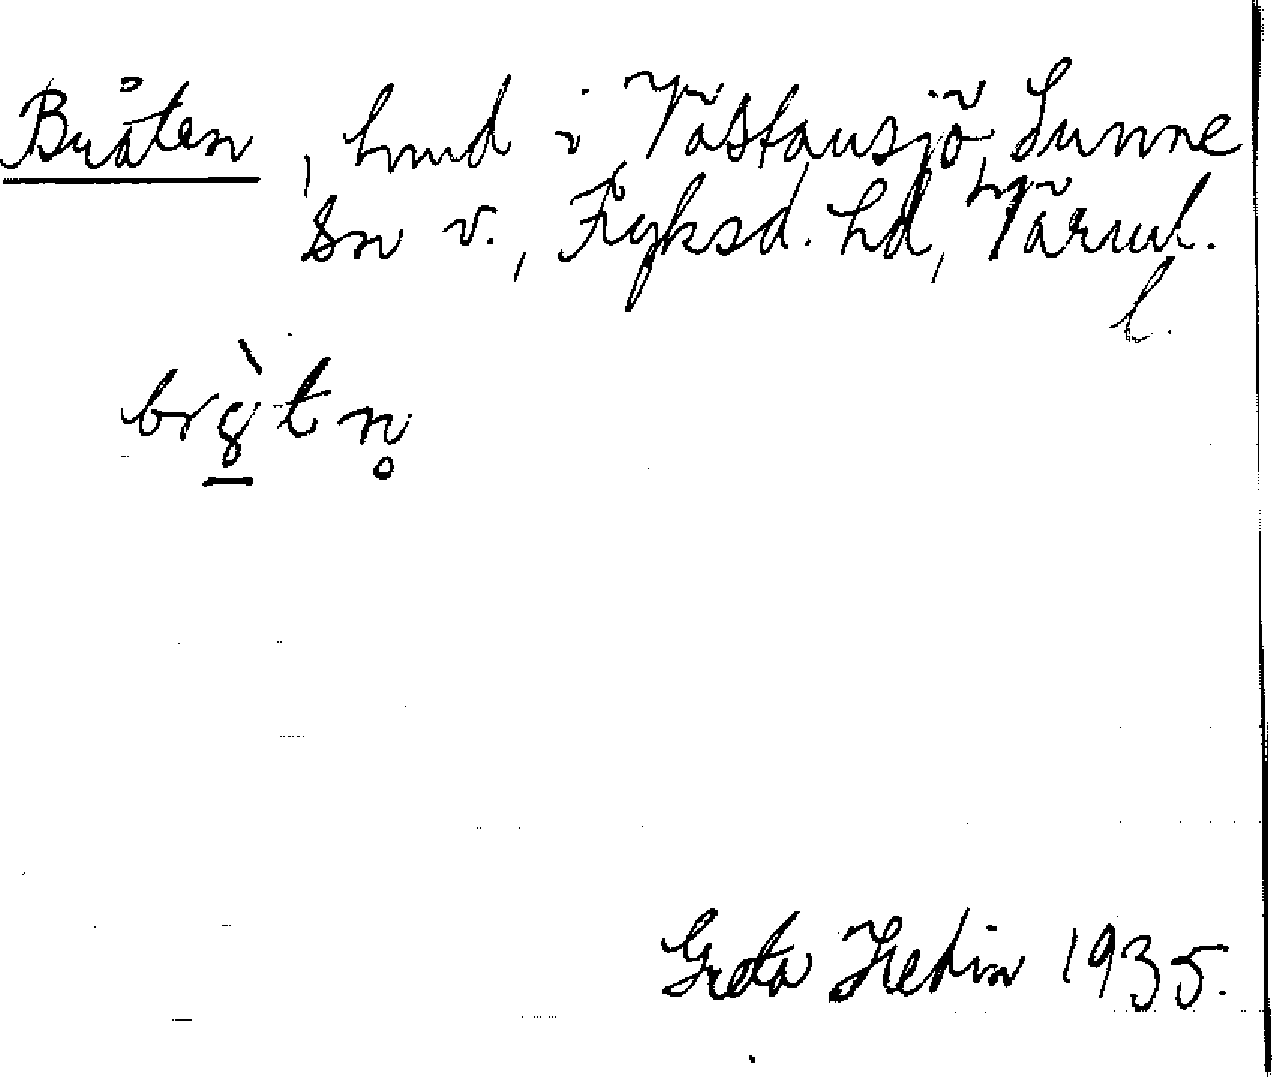 Bråten, hmd i Västansjö, Sunne
sn v., Fryksd. hd, Värml.
l.
brǫ̀tn̥
Greta Hedin 1935.